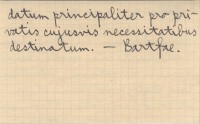 datum principaliter pro pri-
vatis cujusvis necessitatibus
destinatum. — Bartfae.